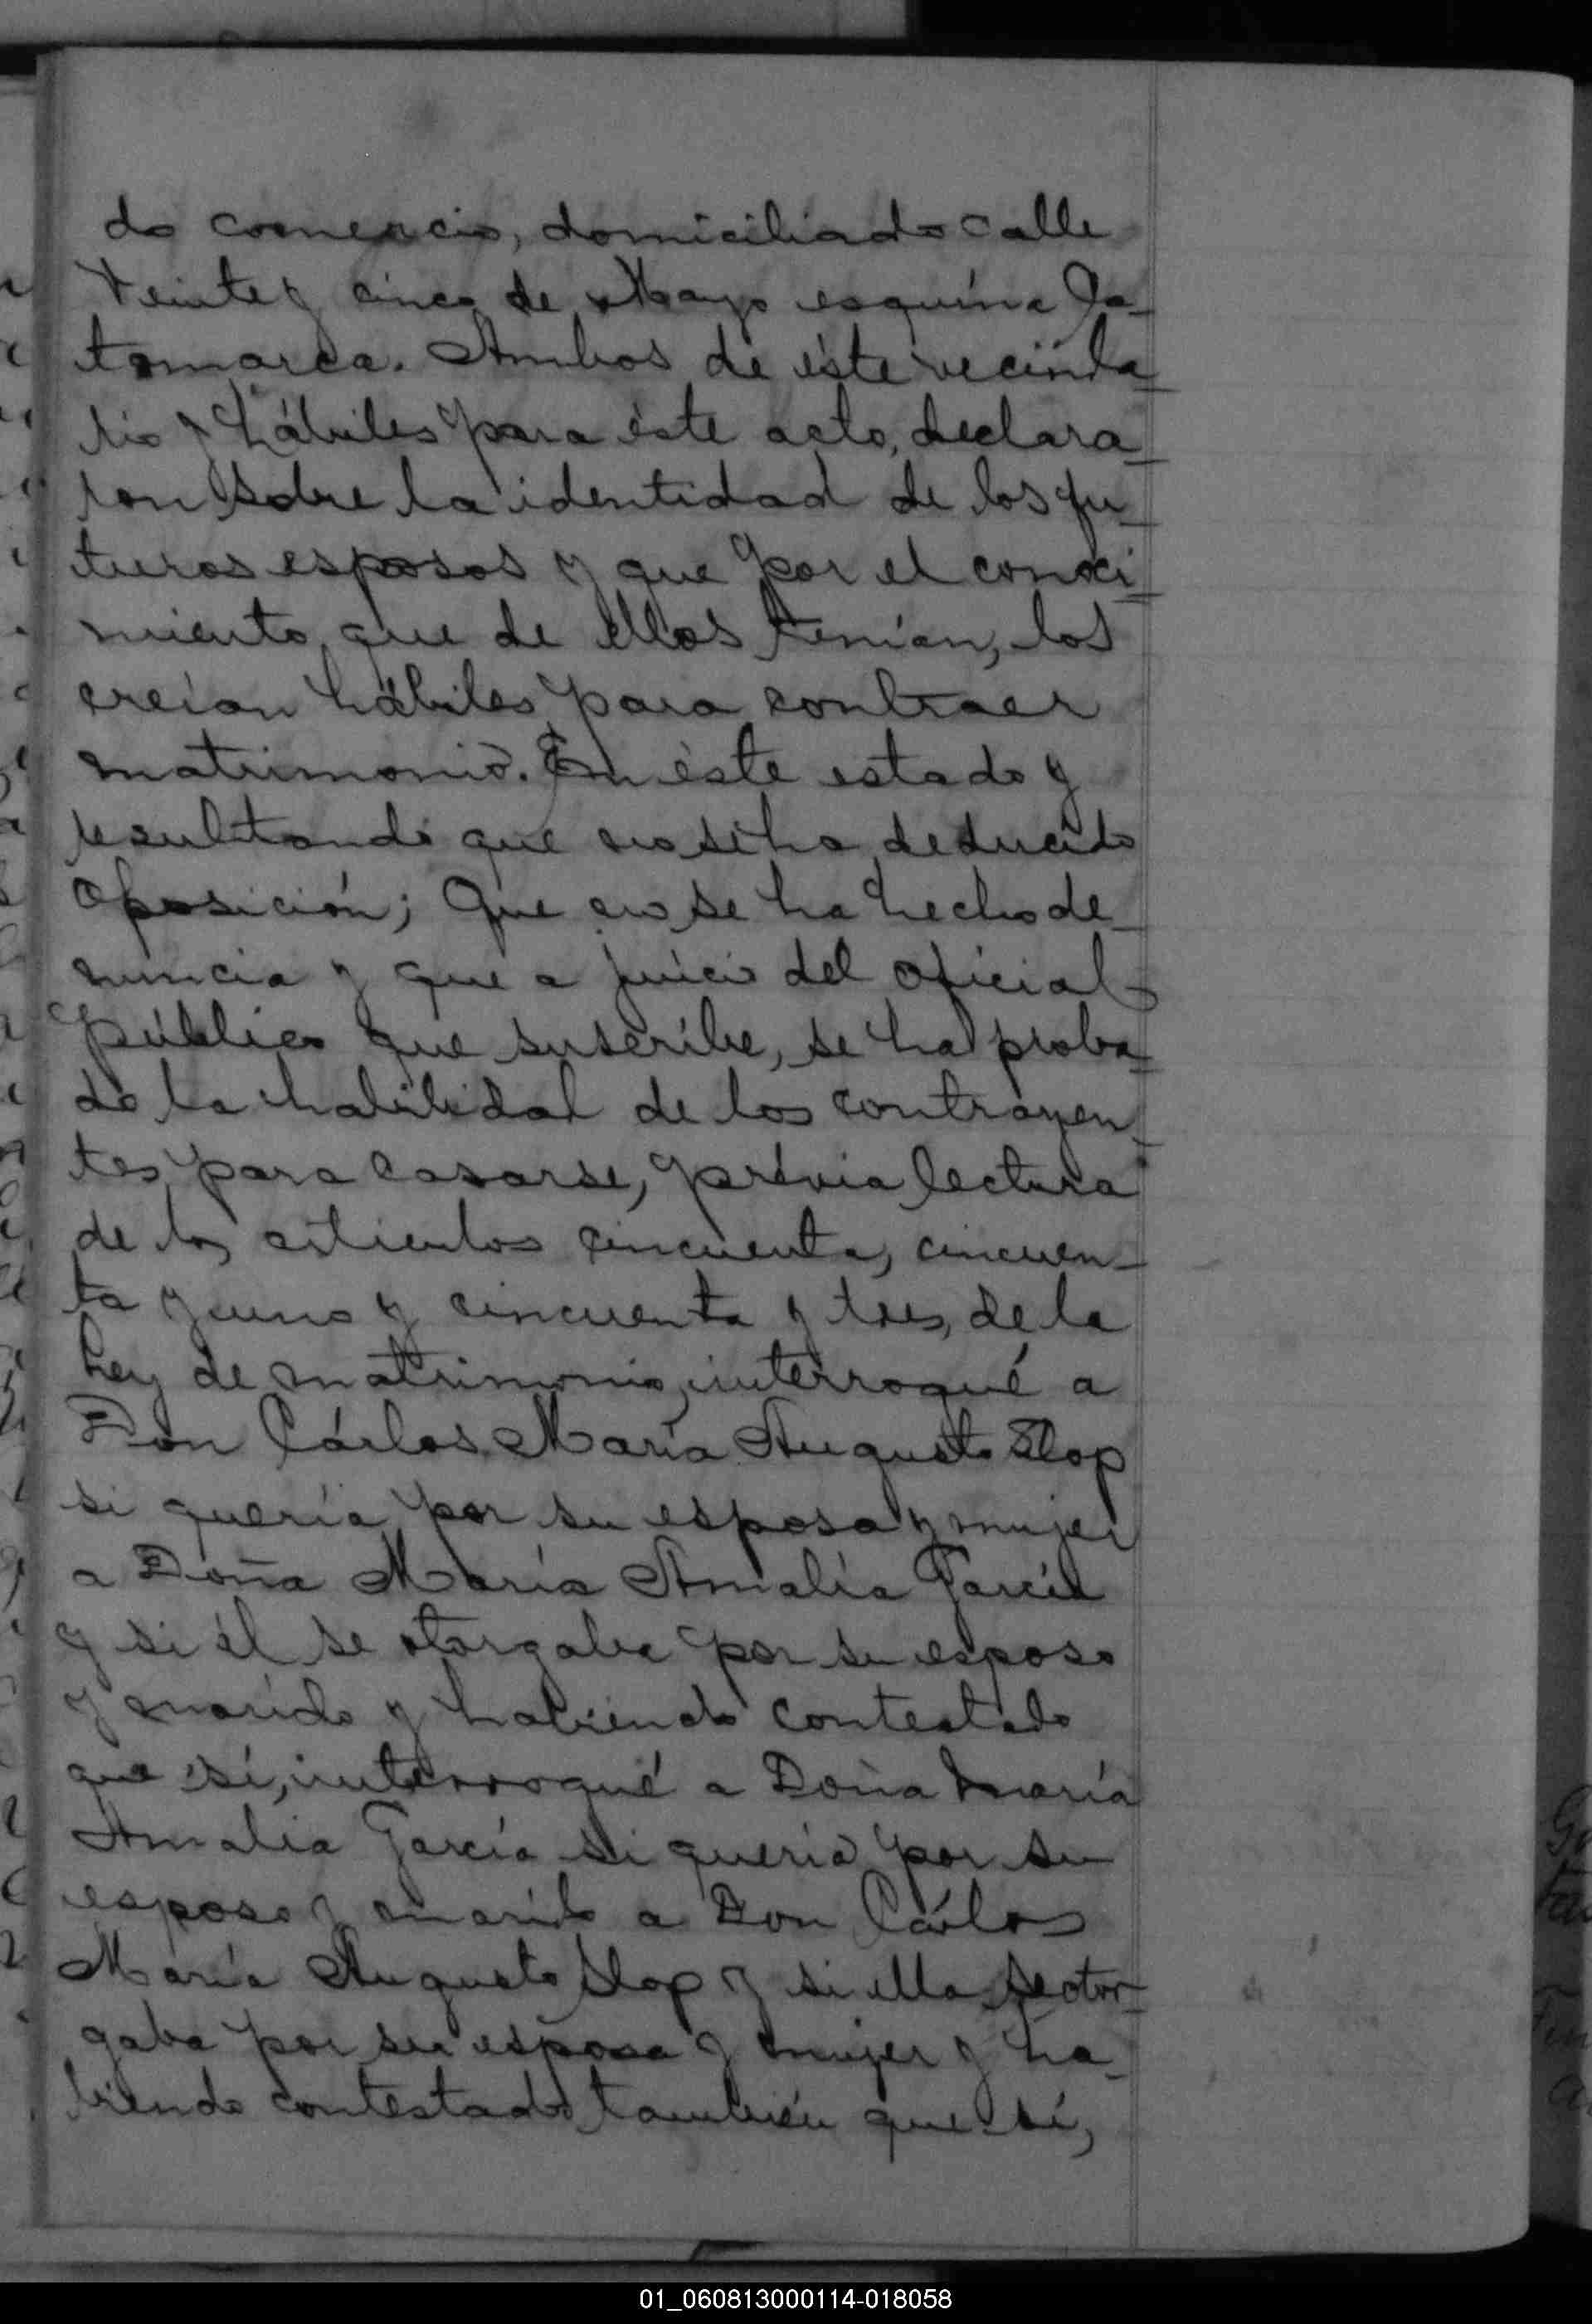 do comercio, domiciliado calle
Veinte y cinco de Mayo esquina Ca-
tamarca. Ambos de éste vecinda-
rio y hábiles para éste acto, declara-
ron sobre la identidad de los fu-
turos esposos y que por el conoci-
miento que de ellos tenían, los
creían hábiles para contraer
matrimonio. En éste estado y
resultando que no se ha deducido
oposición; Que no se ha hecho de-
nuncia y que a juicio del oficial
público que suscribe, se ha proba-
do la habilidad de los contrayen-
tes para casarse, prévia lectura
de los artículos cincuenta, cincuen-
ta y uno y cincuenta y tres, de la
Ley de matrimonio, interrogué a
Don Cárlos María Augusto Slop
si quería por su esposa y mujer
a Doña María Amalia García
y si él se otorgaba por su esposo
y marido y habiendo contestado
que sí, interrogué a Doña María
Amalia García si quería por su
esposo y marido a Don Cárlos
María Augusto Slop y si ella se otor-
gaba por su esposa y mujer y ha-
biendo contestado también que sí,
01_060813000114-018058